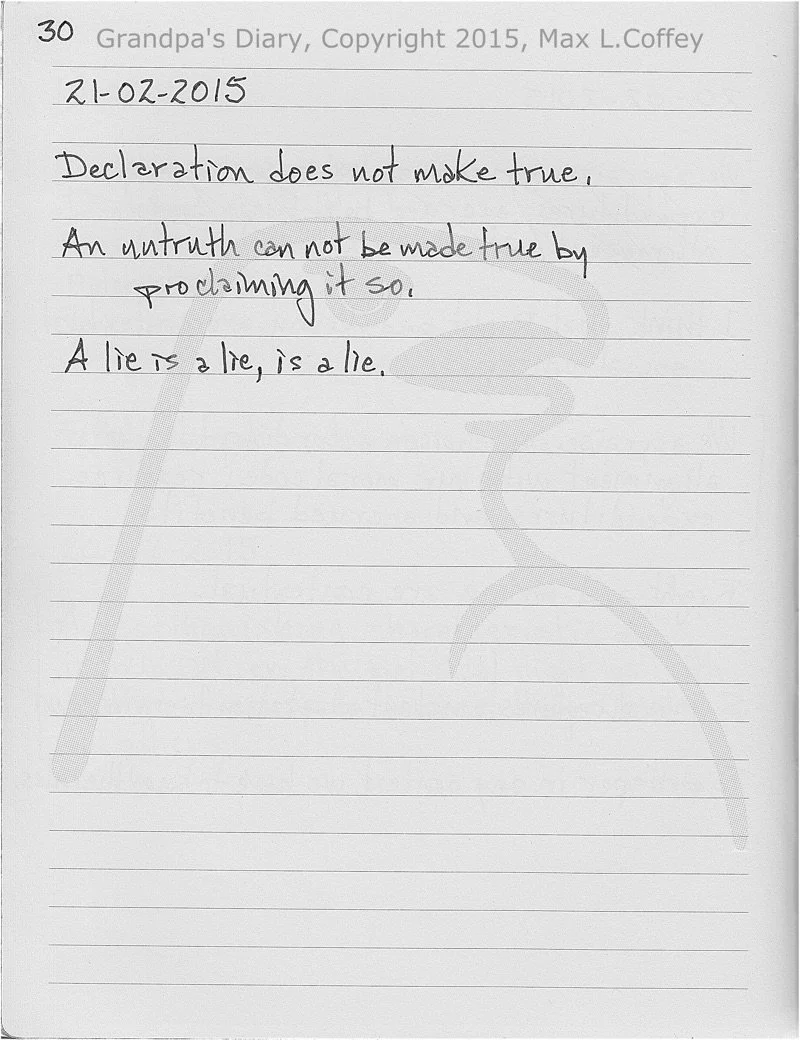 30 Grandpa's Diary, Copyright 2015, Max L.Coffey
21-02-2015
Declaration does not make true.
An untruth can not be made true by
proclaiming it so.
A lie is a lie, is a lie.